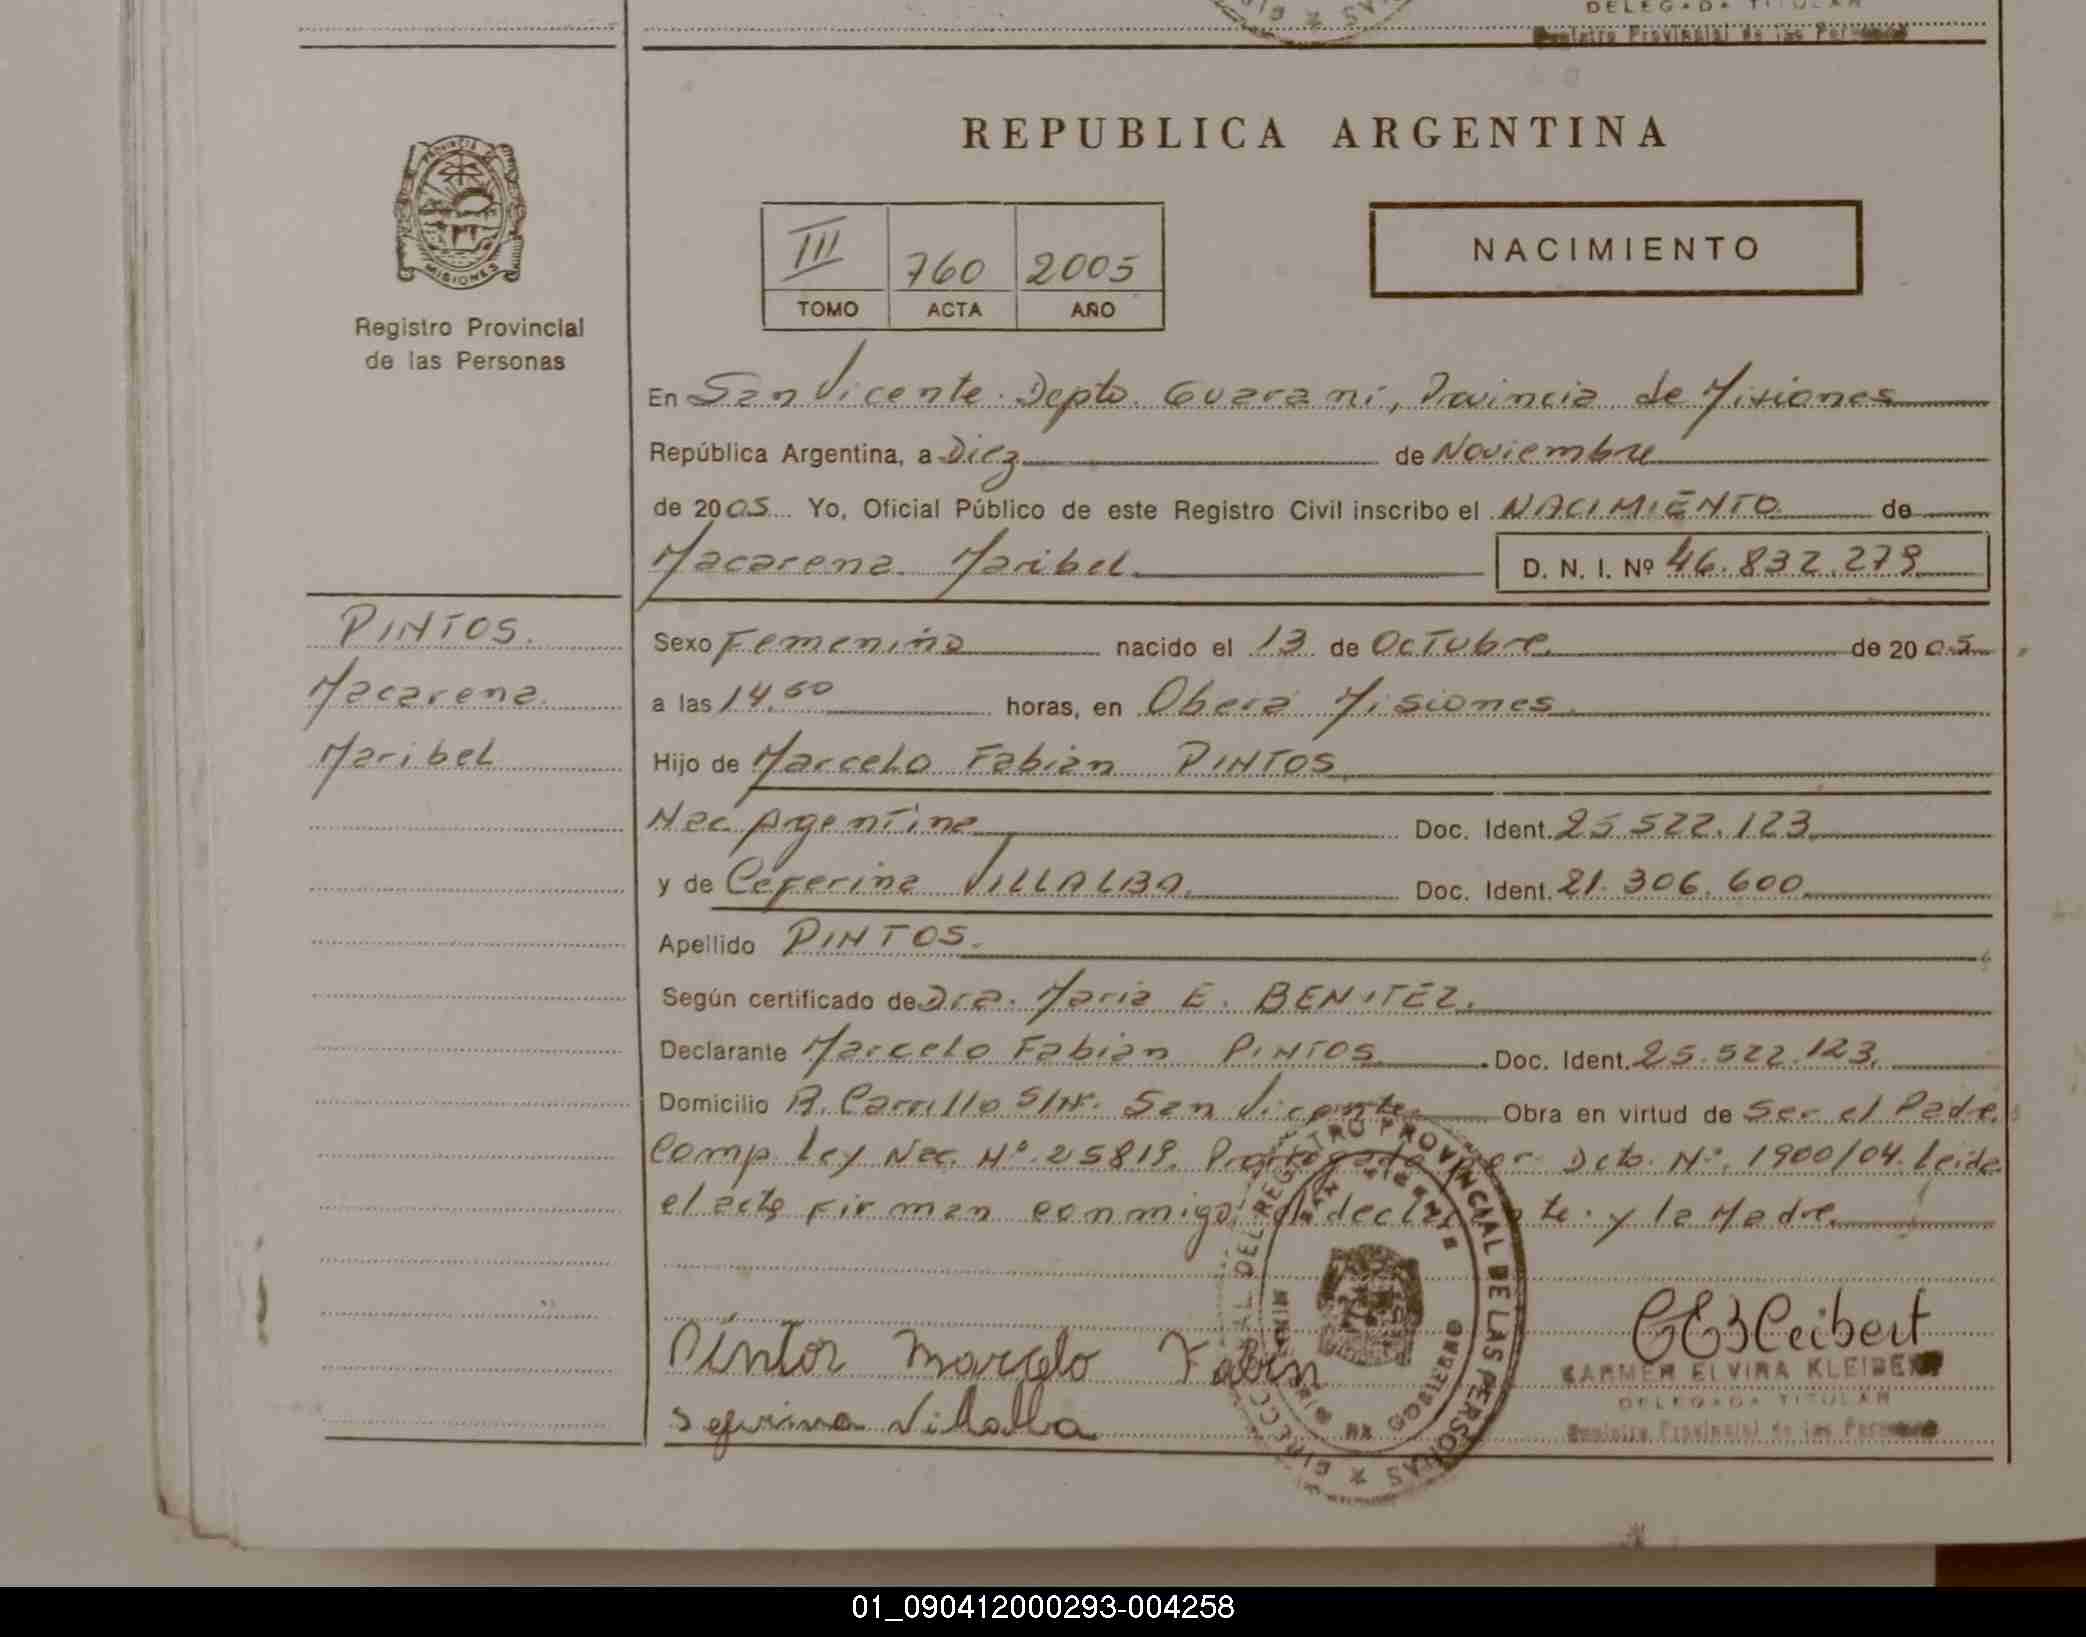 DELEGADA TITULAR
Registro Provincial de las Personas
REPUBLICA ARGENTINA
PROVINCIA DE
MISIONES
Registro Provincial
de las Personas
III 760 2005
TOMO ACTA AÑO
NACIMIENTO
En San Vicente. Depto. Guarani, Provincia de Misiones
República Argentina, a Diez de Noviembre
de 2005 Yo, Oficial Público de este Registro Civil inscribo el NACIMIENTO de
Macarena Maribel D. N. I. Nº 46.832.279
PINTOS.
Macarena
Maribel
Sexo Femenino nacido el 13 de Octubre de 2005
a las 14.50 horas, en Oberá Misiones
Hijo de Marcelo Fabian PINTOS
Nac. Argentina Doc. Ident. 25.522.123
y de Ceferina VILLALBA Doc. Ident. 21.306.600
Apellido PINTOS.
Según certificado de Dra. Maria E. BENITEZ.
Declarante Marcelo Fabian PINTOS Doc. Ident. 25.522.123
Domicilio R. Carrillo S/Nº. San Vicente Obra en virtud de Ser el Padre
Comp. Ley Nac. Nº 25819. Prorrogada por Dcto. Nº. 1900/04. Leida
el acta firman conmigo el declarante. y la Madre
Pintos Marcelo Fabin
Seferina Villalba
REGISTRO PROVINCIAL DE LAS PERSONAS
GOBIERNO
CEKleibert
CARMEN ELVIRA KLEIBERT
DELEGADA TITULAR
Registro Provincial de las Personas
01_090412000293-004258